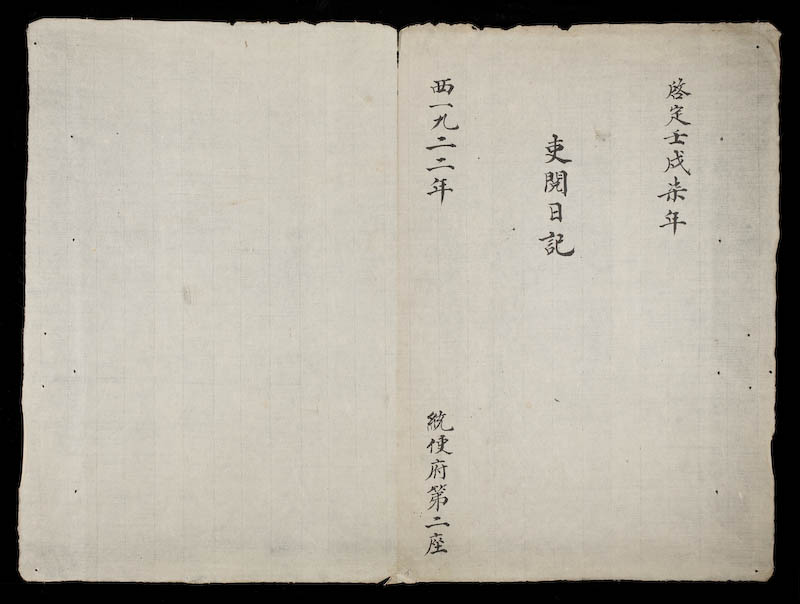 啓定壬戌柒年
吏閱日記
西一九二二年
統使府第二座